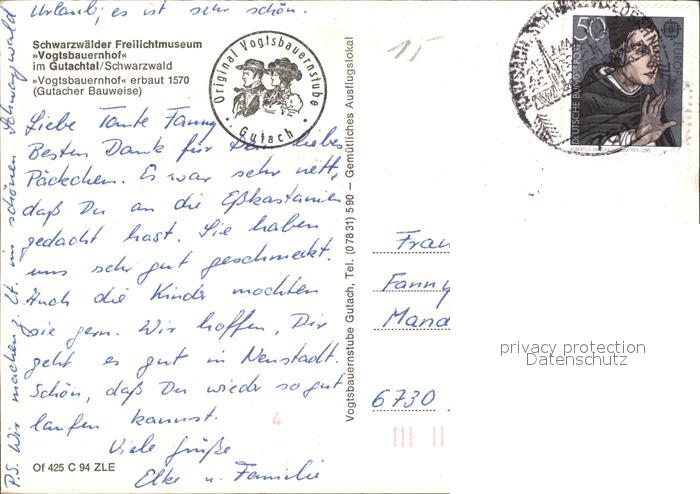 Urlaub; es ist sehr schön.
Schwarzwälder Freilichtmuseum
»Vogtsbauernhof«
im Gutachtal/Schwarzwald
»Vogtsbauernhof« erbaut 1570
(Gutacher Bauweise)
Original Vogtsbauernstube
· Gutach ·
Liebe Tante Fanny
Besten Dank für Dein liebes
Päckchen. Es war sehr nett,
daß Du an die Eßkastanien
gedacht hast. Sie haben
uns sehr gut geschmeckt.
Auch die Kinder mochten
sie gern. Wir hoffen, Dir
geht es gut in Neustadt.
Schön, daß Du wieder so gut
laufen kannst.
Viele Grüße
Elke u. Familie
Of 425 C 94 ZLE
P.S. Wir machen z. Zt. im schönen Schwarzwald
Vogtsbauernstube Gutach, Tel. (07831) 590 – Gemütliches Ausflugslokal
15
50
DEUTSCHE BUNDESPOST
EUROPA
Frau
Fanny
Mand
6730
4
privacy protection
Datenschutz